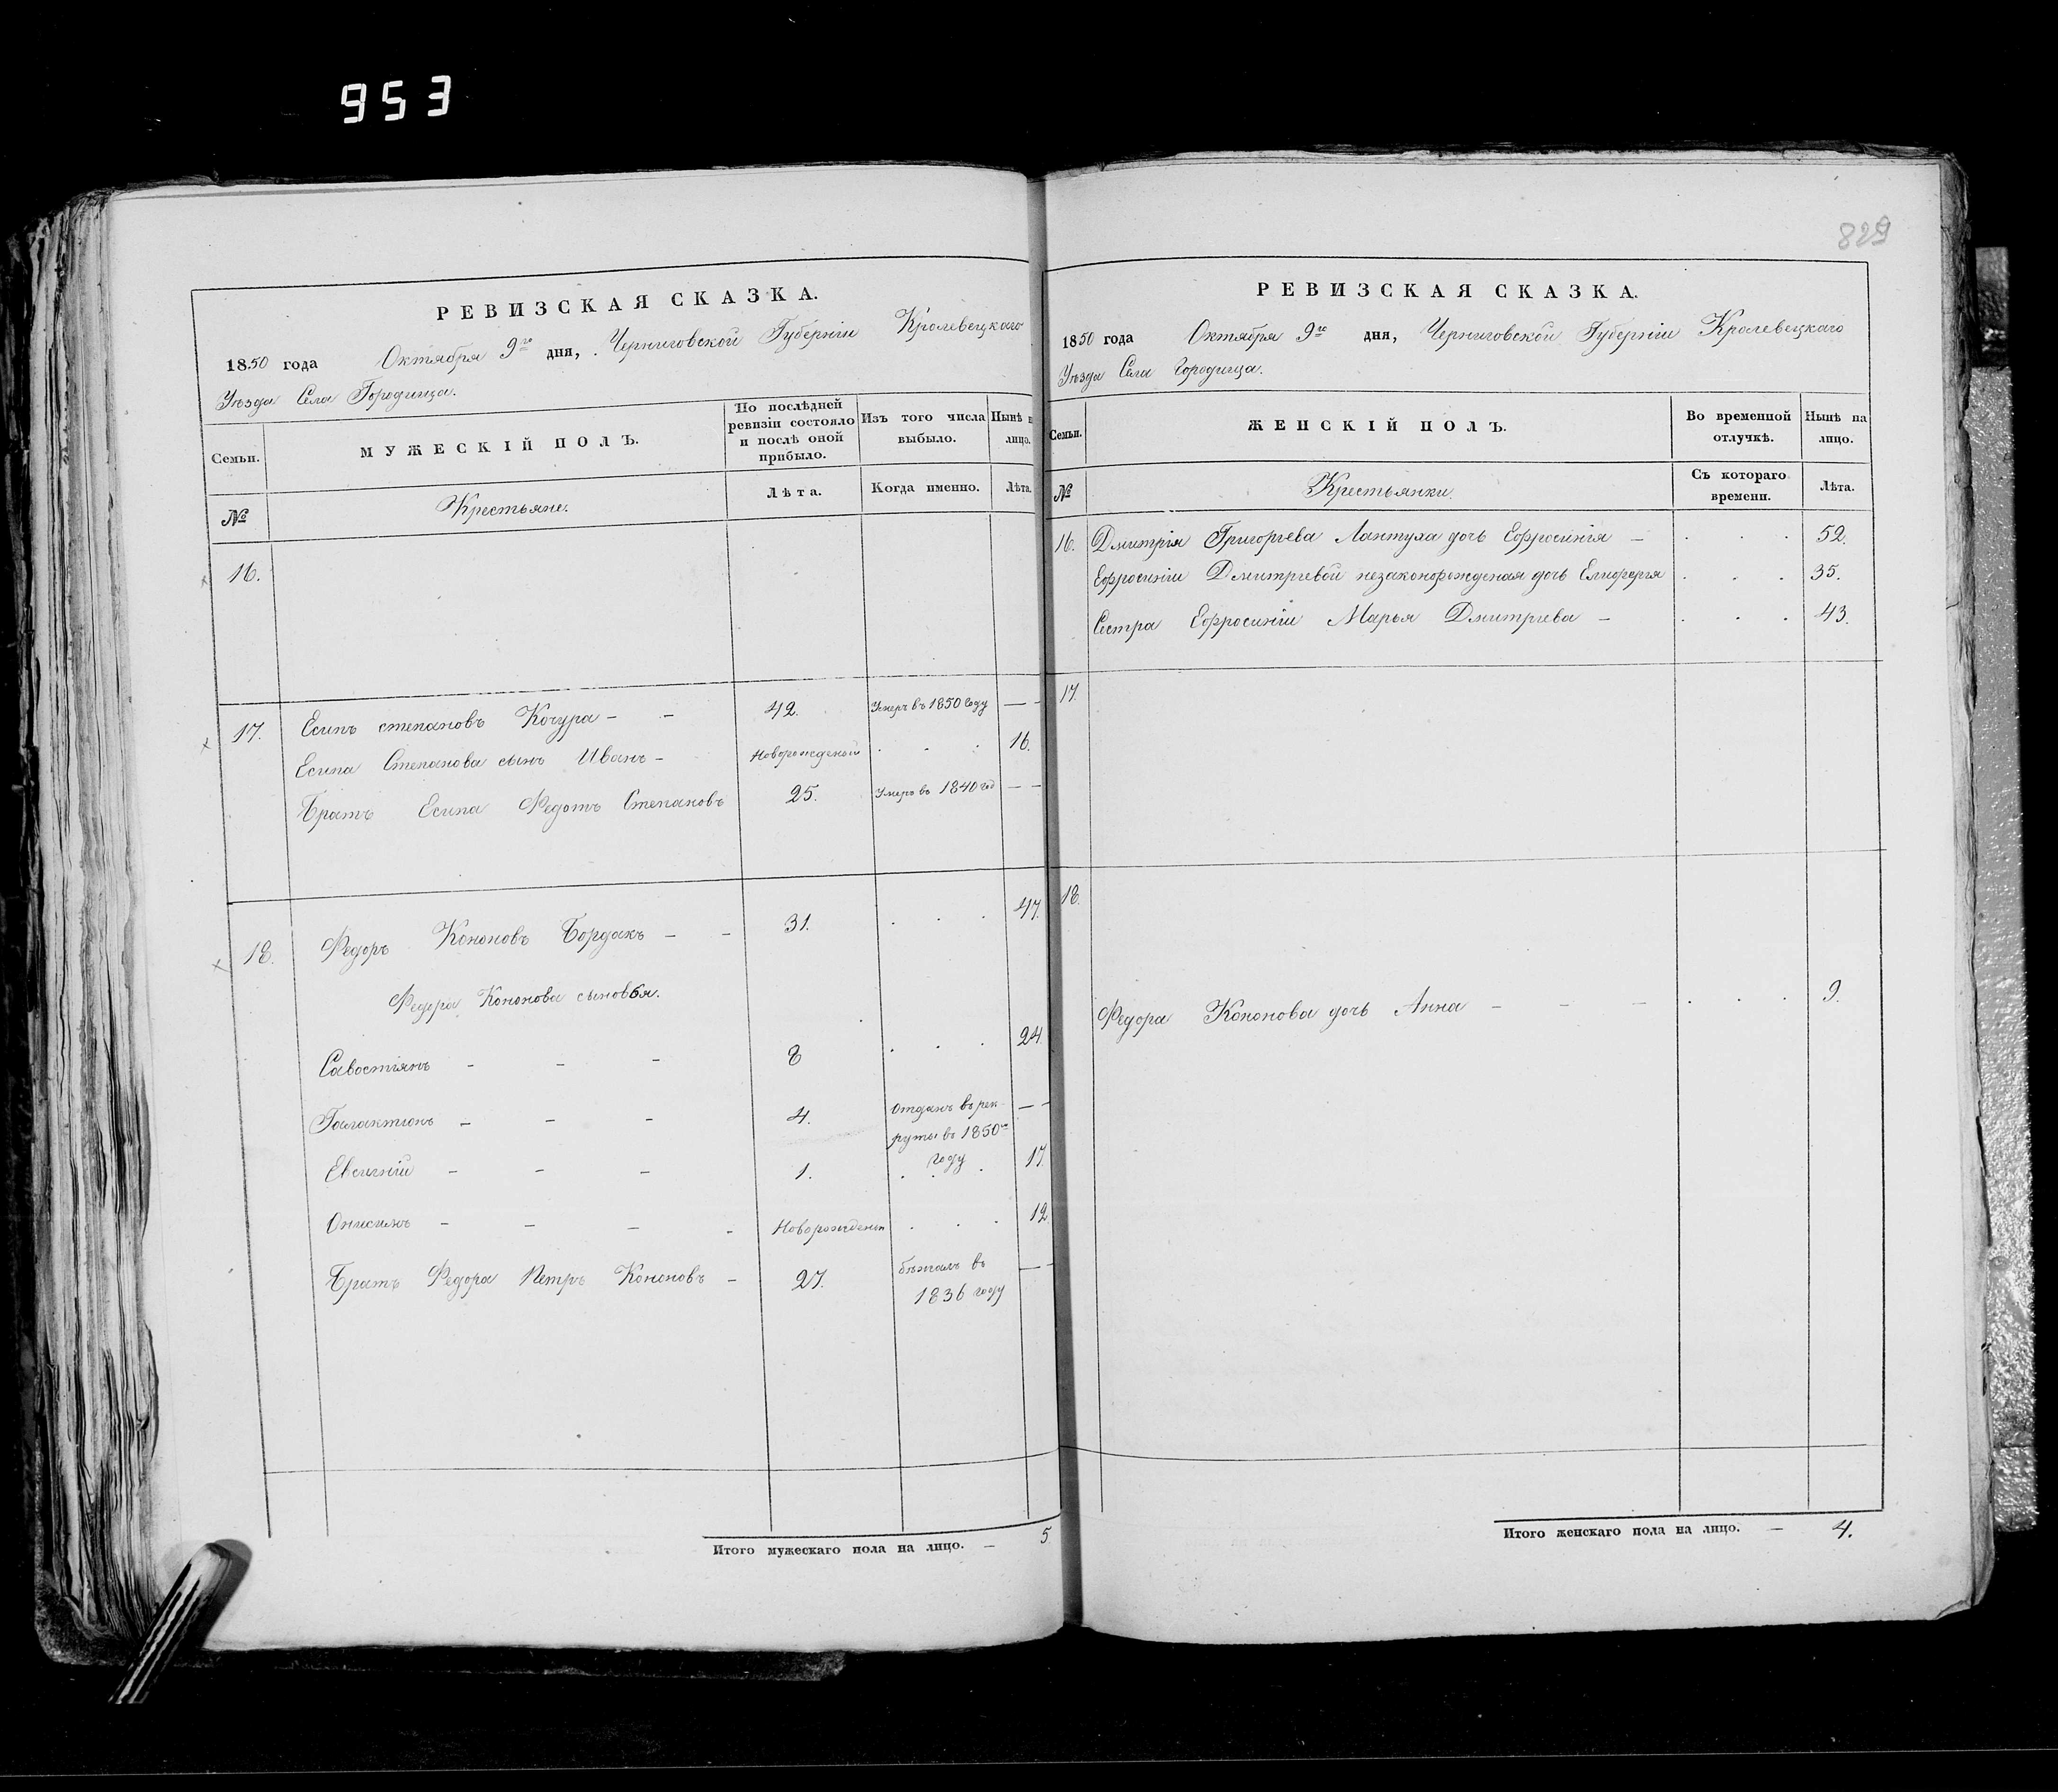 953
829
РЕВИЗСКАЯ СКАЗКА.
1850 года Октября 9го дня, Черниговской Губерніи Кролевецкаго
Уѣзда Села Городища.
Семьи.
МУЖЕСКІЙ ПОЛЪ.
По послѣдней ревизіи состояло и послѣ оной прибыло.
Изъ того числа выбыло.
Нынѣ на лицо.
№
Крестьяне.
Лѣта.
Когда именно.
Лѣта.
16.
17. Есипъ степановъ Кочура - - 42. Умеръ въ 1850 году — -
Есипа Степанова сынъ Иванъ - Новорожденый . . . 16.
Братъ Есипа Федотъ Степановъ 25. Умеръ въ 1840 год — -
18. Федоръ Кононовъ Бордакъ - - 31. . . . 47.
Федора Кононова сыновья.
Савостіянъ - - - 8 . . . 24.
Галактіонъ - - - 4. Отданъ въ рек- — -
руты въ 1850м
году
Евсигній - - - 1. . . . 17.
Онисимъ - - - - Новорожденъ . . . 12.
Братъ Федора Петръ Кононовъ - 27. бѣжалъ въ — -
1836 году
Итого мужескаго пола на лицо. — 5
РЕВИЗСКАЯ СКАЗКА.
1850 года Октября 9го дня, Черниговской Губерніи Кролевецкаго
Уѣзда Села Городища.
Семьи.
ЖЕНСКІЙ ПОЛЪ.
Во временной отлучкѣ.
Нынѣ на лицо.
№
Крестьянки.
Съ котораго времени.
Лѣта.
16. Дмитрія Григорьева Лантуха дочь Ефросинія — . . . 52.
Ефросиніи Дмитріевой незаконорожденая дочь Гликерія . . . 35.
Сестра Ефросиніи Марья Дмитріева — . . . 43.
17.
18.
Федора Кононова дочь Анна - - - . . . 9.
Итого женскаго пола на лицо. — 4.